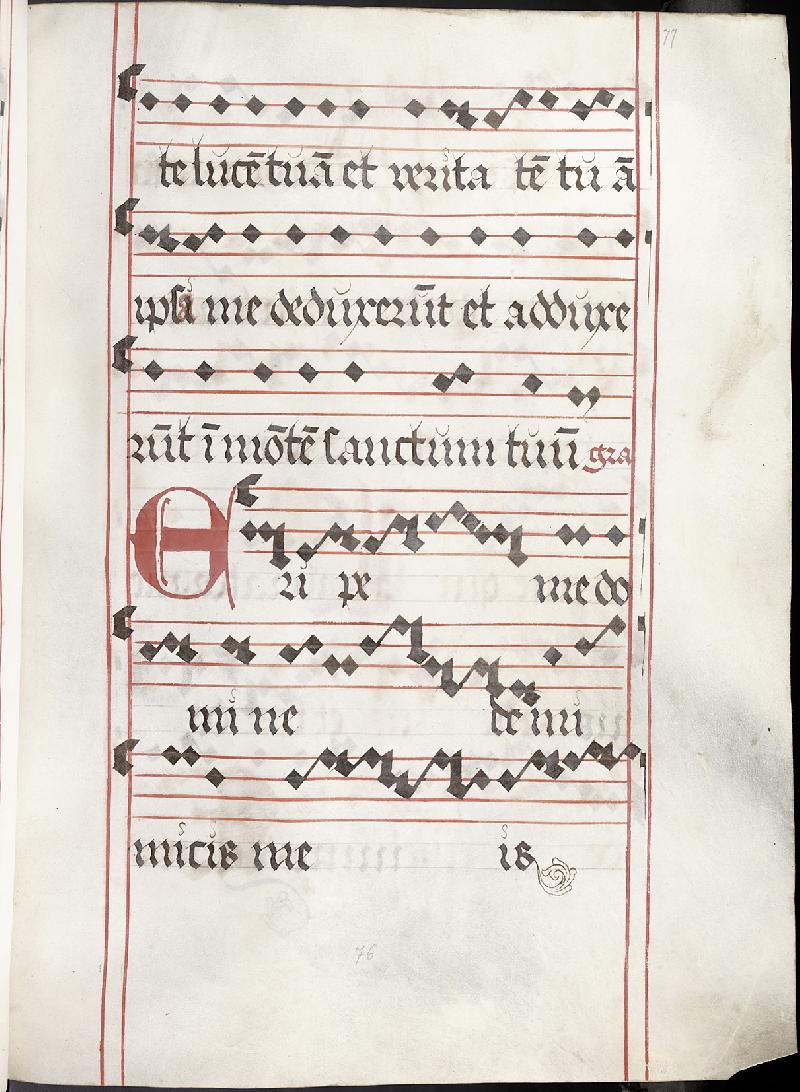 77
te lucē tuā et verita tē tu ā
ipsa me deduxerūt et adduxe
rūt ī mōtē sanctum tuū gra
E ri pe me do
mi ne de ini
micis me is
76